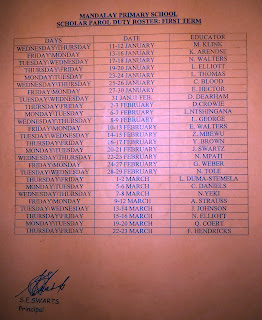 MANDALAY PRIMARY SCHOOL
SCHOLAR PAROL DUTY ROSTER: FIRST TERM
DAYS DATE EDUCATOR
WEDNESDAY/THURSDAY 11-12 JANUARY M. KLINK
FRIDAY/MONDAY 13-16 JANUARY K. ARENDSE
TUESDAY/WEDNESDAY 17-18 JANUARY N. WALTERS
THURSDAY/FRIDAY 19-20 JANUARY L. ELLIOTT
MONDAY/TUESDAY 23-24 JANUARY L. THOMAS
WEDNESDAY/THURSDAY 25-26 JANUARY C. BLOOD
FRIDAY/MONDAY 27-30 JANUARY E. HECTOR
TUESDAY/WEDNESDAY 31 JAN-1 FEB. D. DEARHAM
THURSDAY/FRIDAY 2-3 FEBRUARY D.CROWIE
MONDAY/TUESDAY 6-7 FEBRUARY L.NTSHINGANA
WEDNESDAY/THURSDAY 8-9 FEBRUARY L. GEORGE
FRIDAY/MONDAY 10-13 FEBRUARY E. WALTERS
TUESDAY/WEDNESDAY 14-15 FEBRUARY Z. MBEWU
THURSDAY/FRIDAY 16-17 FEBRUARY Y. BROWN
MONDAY/TUESDAY 20-21 FEBRUARY J. SWARTZ
WEDNESDAY/THURSDAY 22-23 FEBRUARY N. MPATI
FRIDAY/MONDAY 24-27 FEBRUARY G. WEBER
TUESDAY/WEDNESDAY 28-29 FEBRUARY N. TOLE
THURSDAY/FRIDAY 1-2 MARCH L. DUMA-STEMELA
MONDAY/TUESDAY 5-6 MARCH C. DANIELS
WEDNESDAY/THURSDAY 7-8 MARCH N.YEKI
FRIDAY/MONDAY 9-12 MARCH A. STRAUSS
TUESDAY/WEDNESDAY 13-14 MARCH J. JOHNSON
THURSDAY/FRIDAY 15-16 MARCH N. ELLIOTT
MONDAY/TUESDAY 19-20 MARCH Q. COERT
THURSDAY/FRIDAY 22-23 MARCH F. HENDRICKS
S.E.SWARTS
Principal